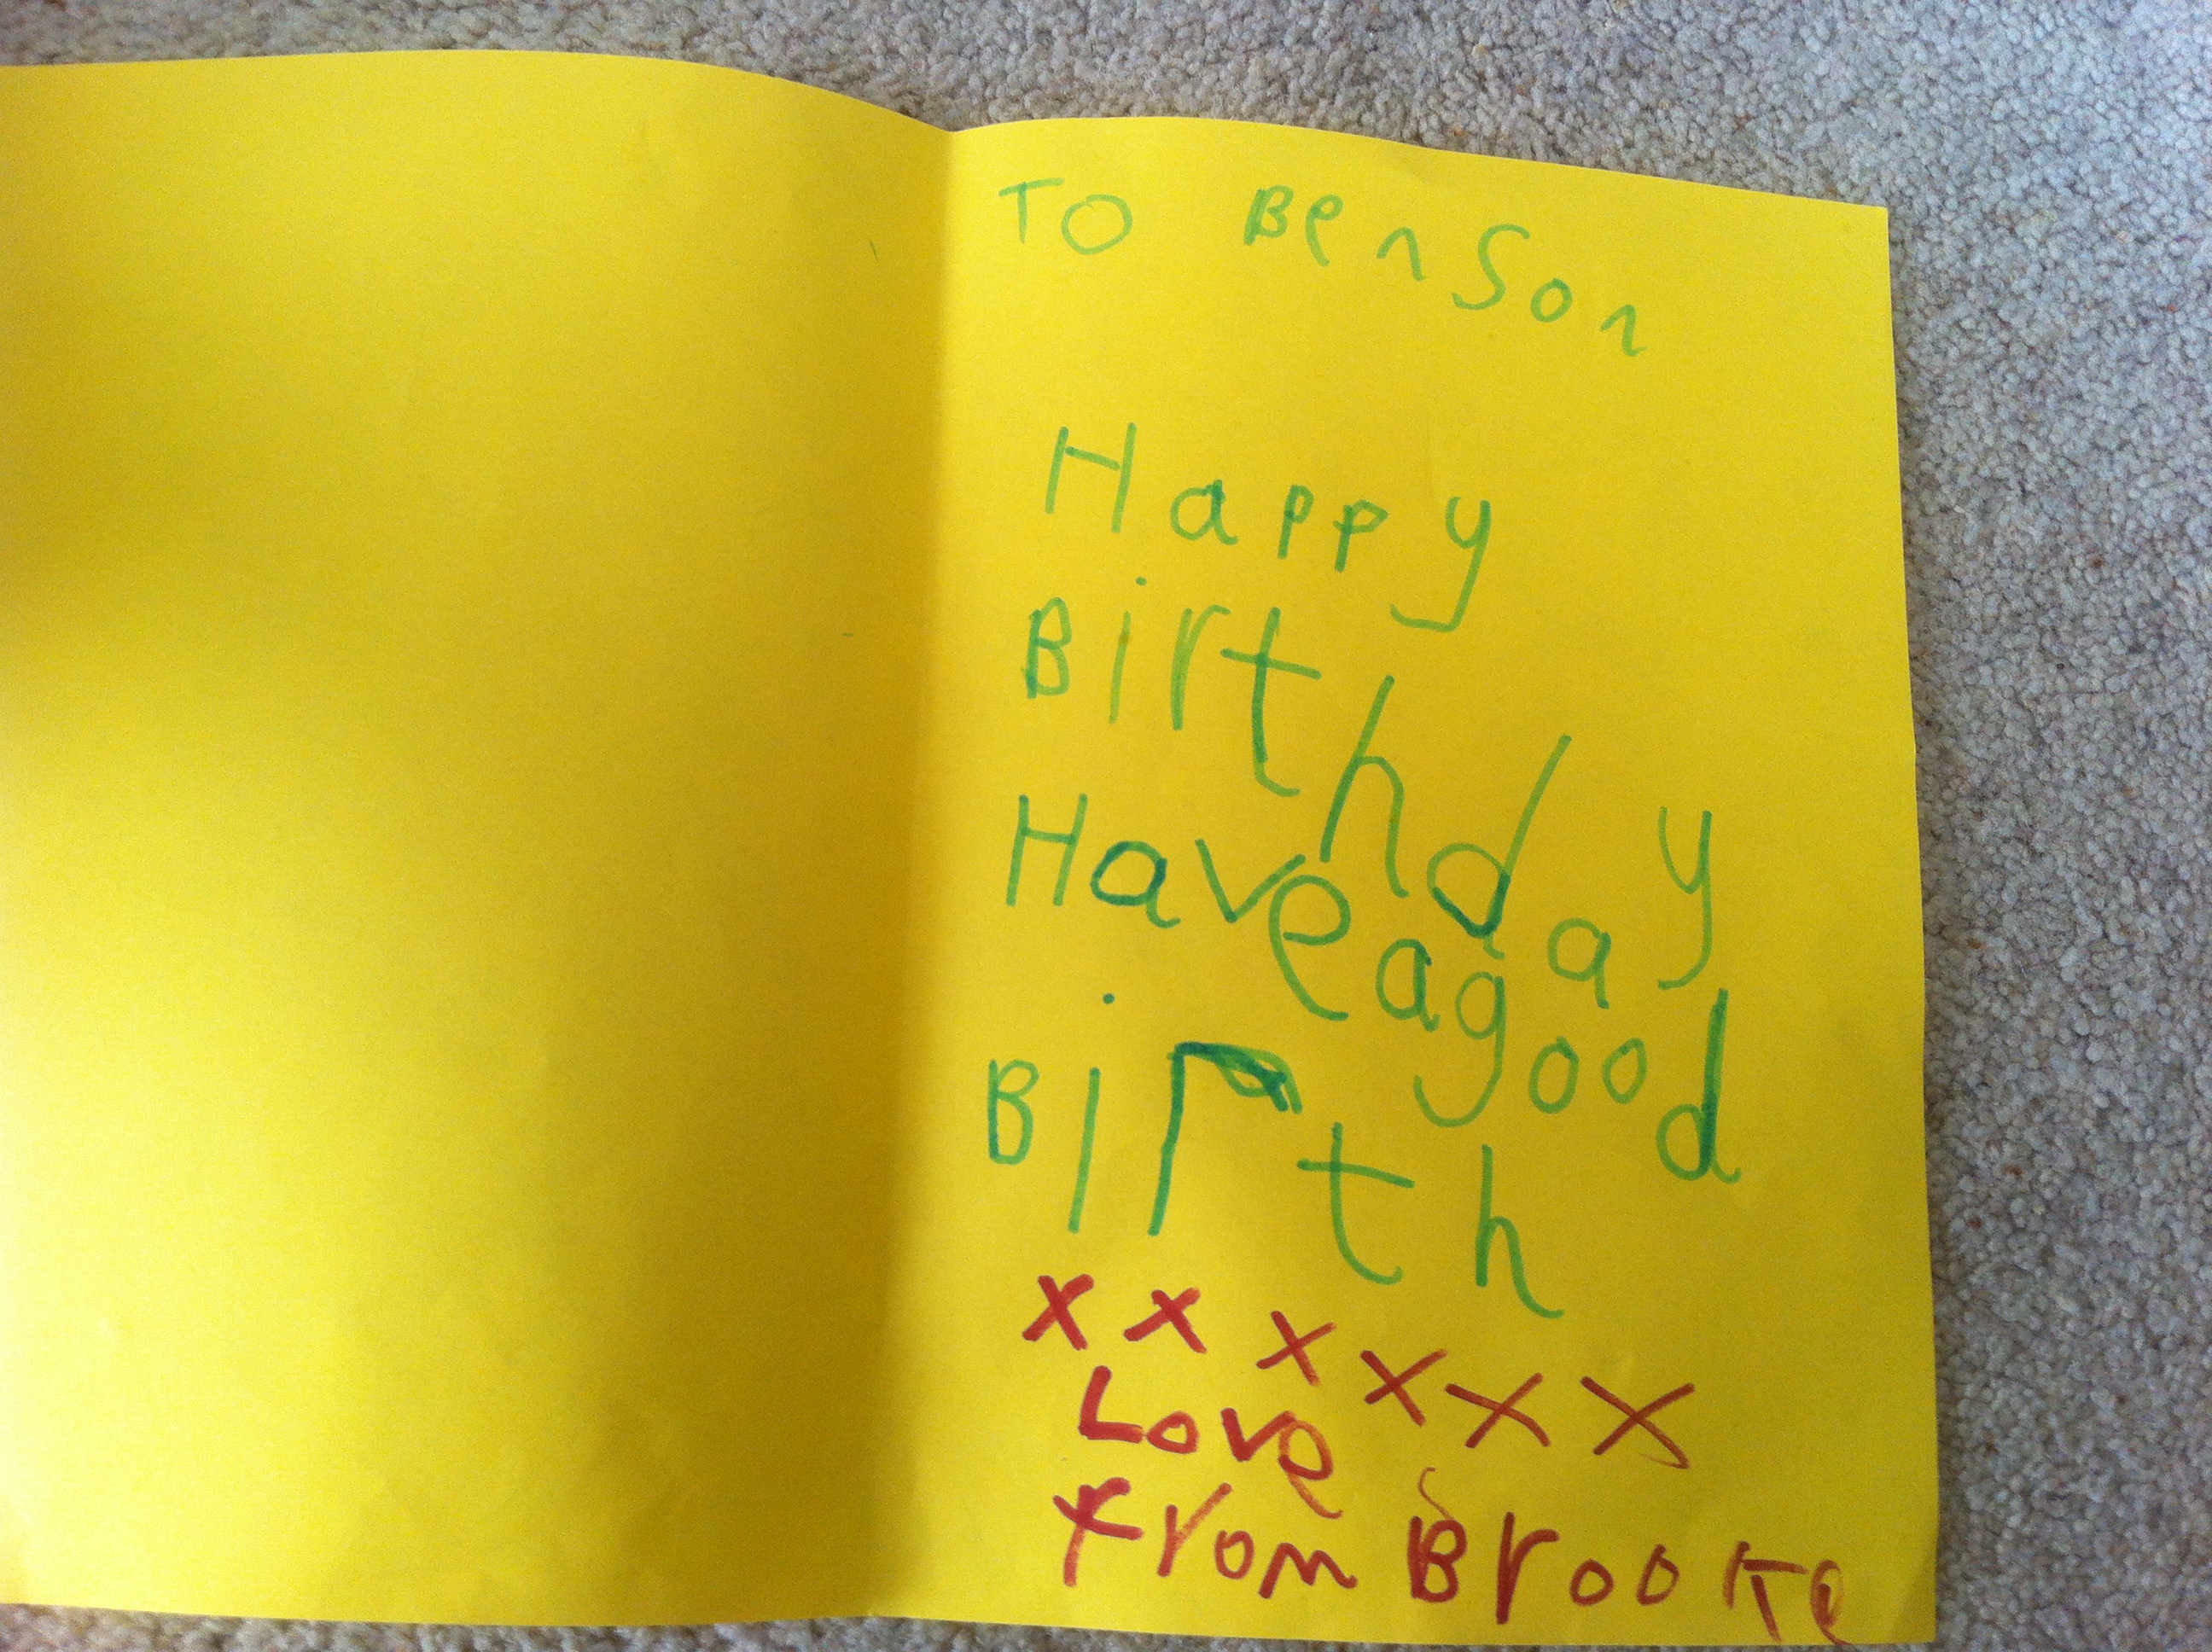 TO Benson
Happy
Birthday
Have a good
Birth
x x x x x x
Love
from Brooke